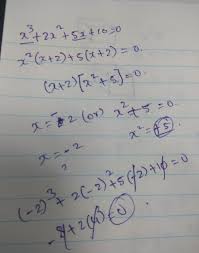 x³+2x²+5x+10=0
x²(x+2)+5(x+2)=0.
(x+2)[x²+5]=0.
x=-2 (or) x²+5=0.
x=-2 x²=-5
(-2)³+2(-2)²+5(-2)+10=0
-8+2(4)=0